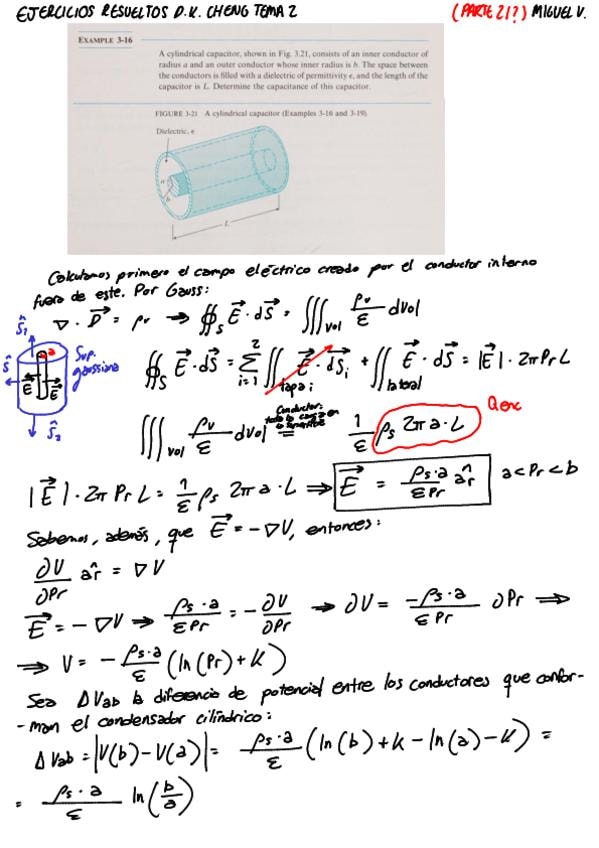 EJERCICIOS RESUELTOS D.K. CHENG TEMA 2 (PARTE 21?) MIGUEL V.
EXAMPLE 3-16
A cylindrical capacitor, shown in Fig. 3.21, consists of an inner conductor of
radius a and an outer conductor whose inner radius is b. The space between
the conductors is filled with a dielectric of permittivity ε, and the length of the
capacitor is L. Determine the capacitance of this capacitor.
FIGURE 3-21 A cylindrical capacitor (Examples 3-16 and 3-19).
Dielectric, ε
a
b
L
Calculamos primero el campo eléctrico creado por el conductor interno
fuera de este. Por Gauss:
∇ · D⃗ = ρv ⇒ ∯s E⃗ · dS⃗ = ∭vol ρv/ε dvol
ŝ1
ŝ
a
E⃗ E⃗
ŝ2
Sup.
gaussiana
∯s E⃗ · dS⃗ = Σ(i=1, 2) ∬tapa i E⃗ · dS⃗i + ∬lateral E⃗ · dS⃗ = |E⃗| · 2π Pr L
∭vol ρv/ε dvol = 1/ε ρs 2π a · L Qenc
Conductor:
toda la carga en
|E⃗| · 2π Pr L = 1/ε ρs 2π a · L ⇒ E⃗ = ρs · a/ε Pr âr a < Pr < b
Sabemos, además, que E⃗ = -∇V, entonces:
∂V/∂Pr âr = ∇V
E⃗ = -∇V ⇒ ρs · a/ε Pr = -∂V/∂Pr → ∂V = -ρs · a/ε Pr ∂Pr ⇒
⇒ V = -ρs · a/ε (ln(Pr) + K)
Sea ΔVab la diferencia de potencial entre los conductores que confor-
-man el condensador cilíndrico:
ΔVab = |V(b) - V(a)| = ρs · a/ε (ln(b) + K - ln(a) - K) =
= ρs · a/ε ln(b/a)